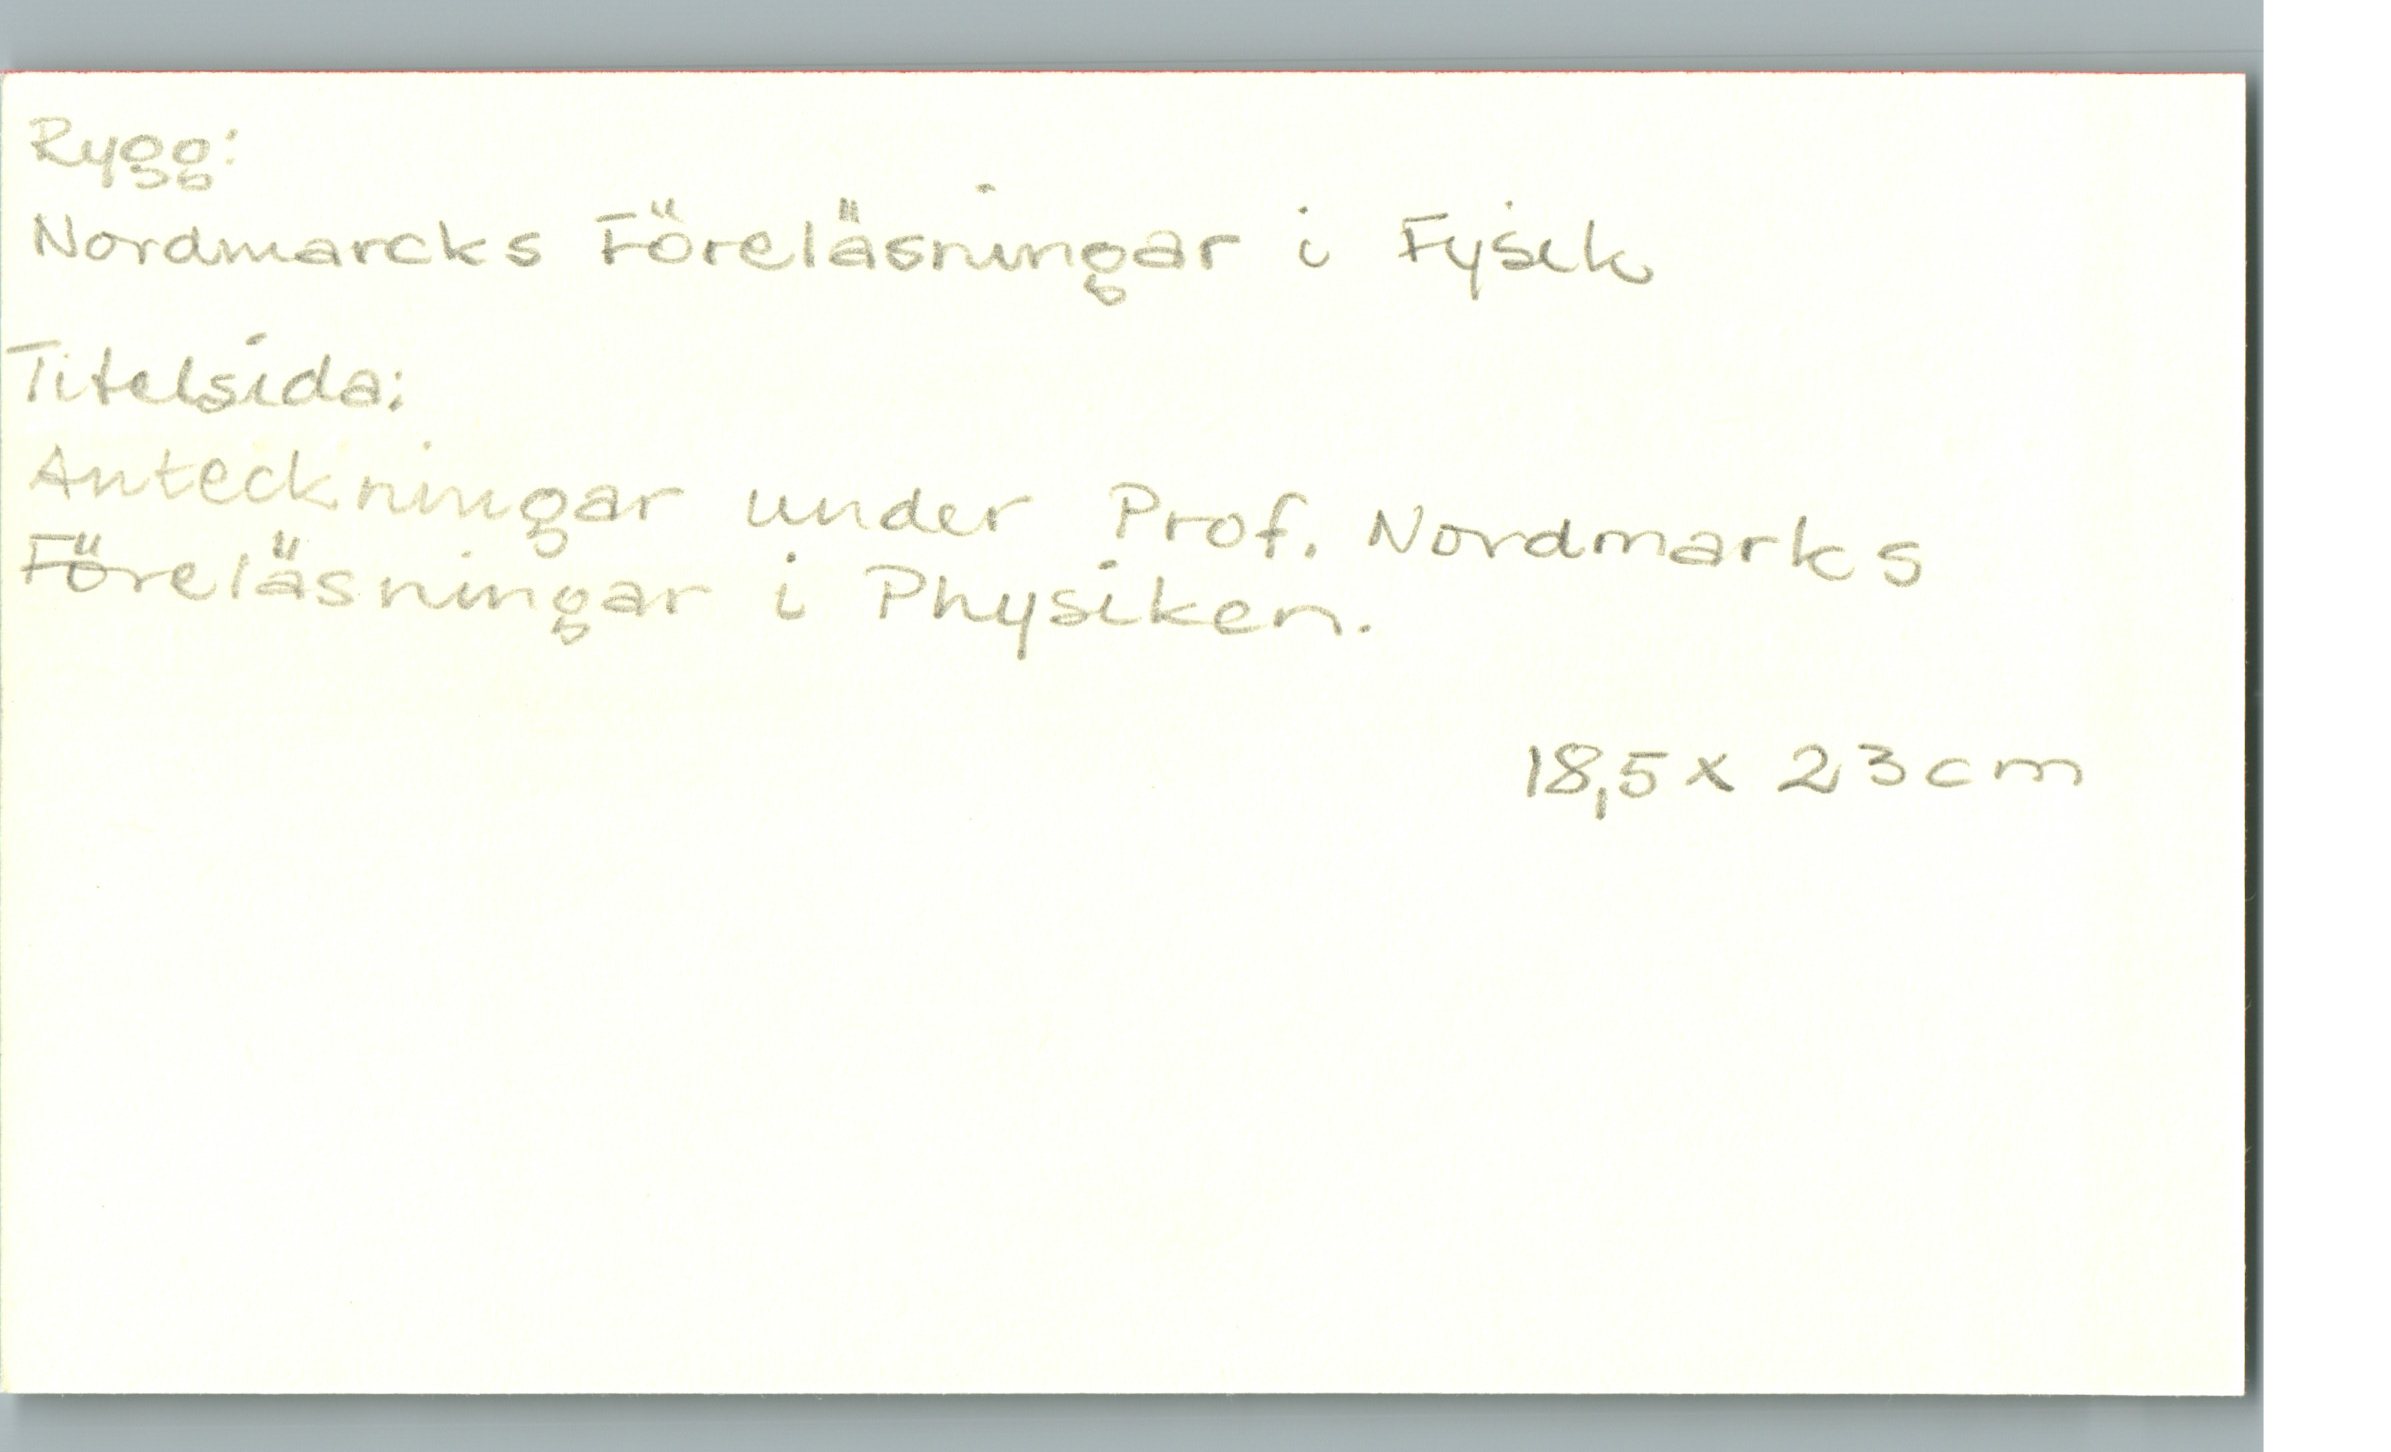 Rygg:
Nordmarcks Föreläsningar i Fysik
Titelsida:
Anteckningar under Prof. Nordmarks
Föreläsningar i Physiken.
18,5 x 23 cm